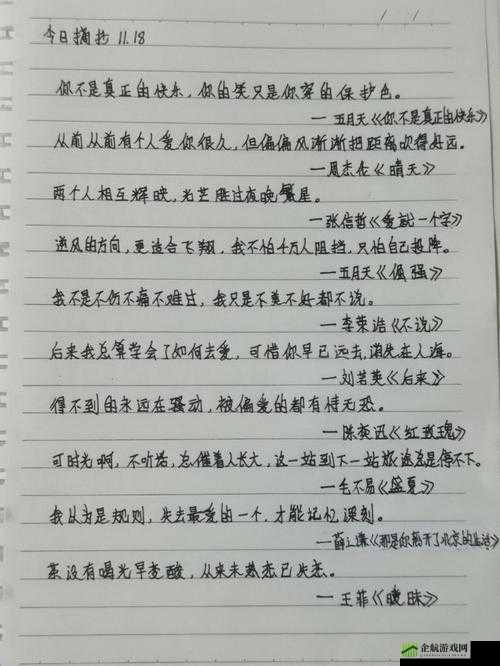 今日摘抄 11.18
你不是真正的快乐，你的笑只是你穿的保护色。
— 五月天《你不是真正的快乐》
从前从前有个人爱你很久，但偏偏风渐渐把距离吹得好远。
—周杰伦《晴天》
两个人相互辉映，光芒胜过夜晚繁星。
—张信哲《爱就一个字》
逆风的方向，更适合飞翔，我不怕千万人阻挡，只怕自己投降。
—五月天《倔强》
我不是不伤不痛不难过，我只是不美不好都不说。
—李荣浩《不说》
后来我总算学会了如何去爱，可惜你早已远去，消失在人海。
—刘若英《后来》
得不到的永远在骚动，被偏爱的都有恃无恐。
—陈奕迅《红玫瑰》
可时光啊，不听话，总催着人长大，这一站到下一站旅途总是停不下。
—毛不易《盛夏》
我认为是规则，失去最爱的一个，才能记忆深刻。
—薛之谦《那是你离开了北京的生活》
茶没有喝光早变酸，从来未热恋已失恋。
—王菲《暧昧》
企航游戏网